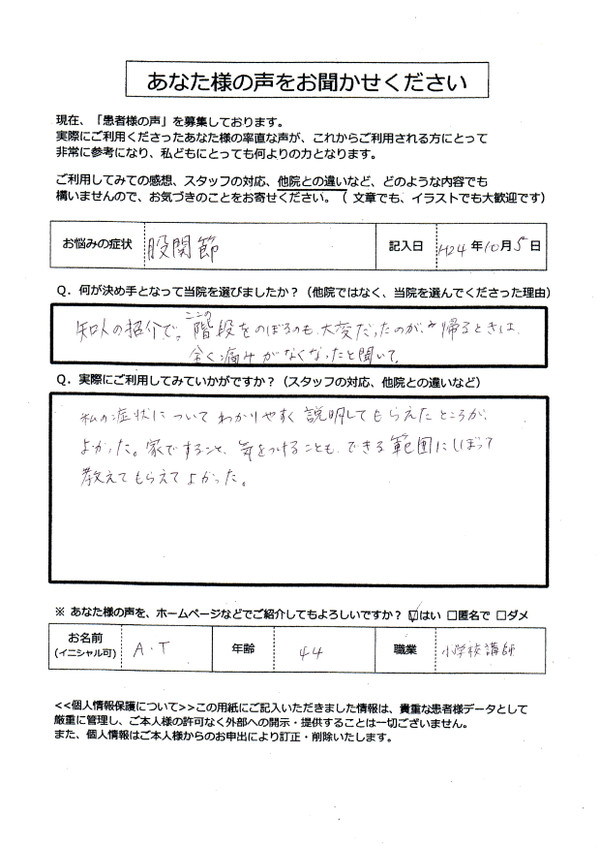 あなた様の声をお聞かせください
現在、「患者様の声」を募集しております。
実際にご利用くださったあなた様の率直な声が、これからご利用される方にとって
非常に参考になり、私どもにとっても何よりの力となります。
ご利用してみての感想、スタッフの対応、他院との違いなど、どのような内容でも
構いませんので、お気づきのことをお寄せください。（ 文章でも、イラストでも大歓迎です）
お悩みの症状 股関節 記入日 H24 年 10 月 5 日
Q. 何が決め手となって当院を選びましたか？（他院ではなく、当院を選んでくださった理由）
ここの
知人の紹介で。階段をのぼるのも、大変だったのが、帰るときは、
全く痛みがなくなったと聞いて。
Q. 実際にご利用してみていかがですか？（スタッフの対応、他院との違いなど）
私の症状について わかりやすく 説明してもらえたところが、
よかった。家ですること、気をつけることも、できる範囲にしぼって
教えてもらえてよかった。
※ あなた様の声を、ホームページなどでご紹介してもよろしいですか？ ☑はい □匿名で □ダメ
お名前 A・T 年齢 44 職業 小学校講師
(イニシャル可)
<<個人情報保護について>>この用紙にご記入いただきました情報は、貴重な患者様データとして
厳重に管理し、ご本人様の許可なく外部への開示・提供することは一切ございません。
また、個人情報はご本人様からのお申出により訂正・削除いたします。